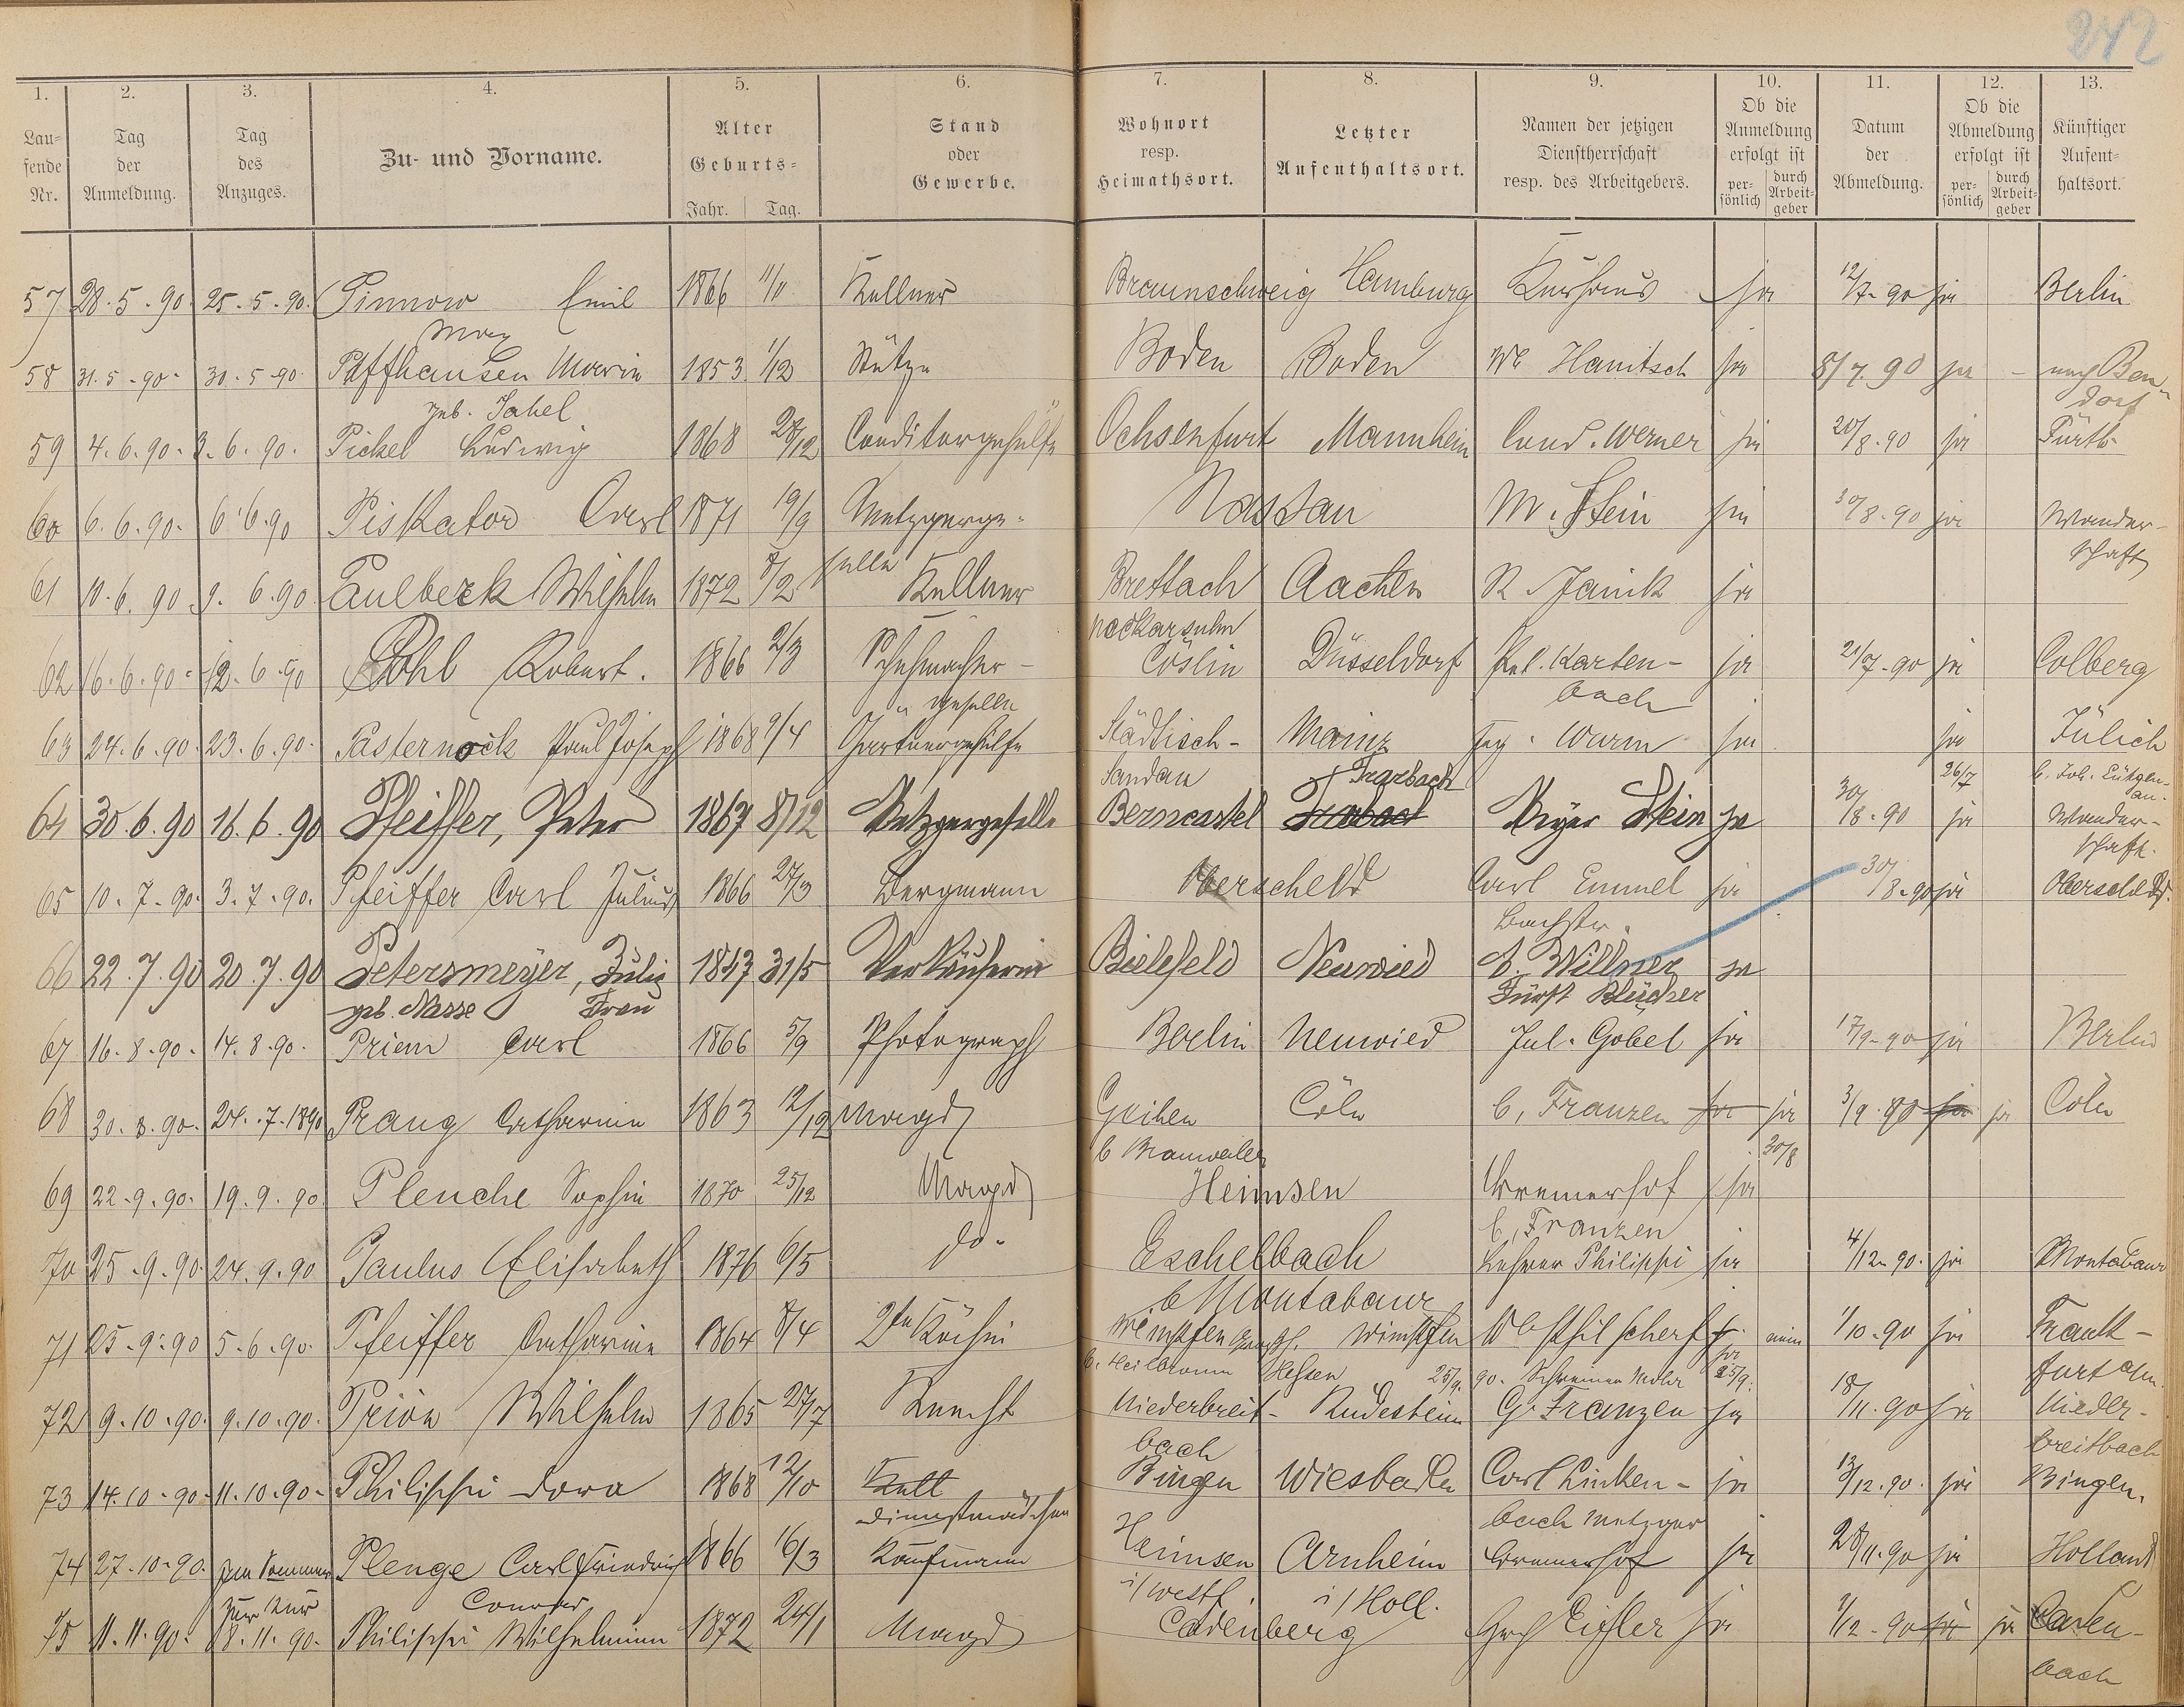 242
1. 2. 3. 4. 5. 6. 7. 8. 9. 10. 11. 12. 13.
Laufende Nr. Tag der Anmeldung. Tag des Anzuges. Zu- und Vorname. Alter Geburts= Jahr. Tag. Stand oder Gewerbe. Wohnort resp. Heimathsort. Letzter Aufenthaltsort. Namen der jetzigen Dienstherrschaft resp. des Arbeitgebers. Ob die Anmeldung erfolgt ist persönlich durch Arbeitgeber Datum der Abmeldung. Ob die Abmeldung erfolgt ist persönlich durch Arbeitgeber Künftiger Aufenthaltsort.
57 28.5.90 25.5.90. Pinnow Emil 1866 Kellner Braunschweig Hamburg Kurhaus ja 12/7.90 ja Berlin
58 31.5.90. 30.5.90. Paffhausen Maria 1853 1/12 Stütze Boden Boden We Hanitsch ja 8/7.90 ja nach Ben-
geb. Jahel dorf
59 4.6.90. 3.6.90. Pickel Ludwig 1868 28/12 Conditorgehülfe Ochsenfurt Mannheim Cond. Werner ja 20/8.90 ja Fürth
60 6.6.90. 6.6.90 Piskator Carl 1871 19/9 Metzgerge- Nassau M. Stein ja 30/8.90 ja Wander-
selle schaft
61 11.6.90. 9.6.90 Paulbeck Wilhelm 1872 8/2 Kellner Brettach Aachen R. Janik ja
Neckarsulm
62 16.6.90. 12.6.90 Pohl Robert. 1866 2/3 Schuhmacher- Cöslin Düsseldorf Pet. Karten- ja 21/7.90 ja Colberg
geselle bach
63 24.6.90. 23.6.90. Pasternack Paul Joseph 1868 9/4 Gartnergehülfe Städtisch- Mainz Wurm ja ja Jülich
Sandau Trarbach 26/7
64 30.6.90 16.6.90 Pfeiffer, Peter 1867 8/12 Metzgergeselle Berncastel Trarbach Stein ja 30/8.90 ja Wander-
schaft.
65 10.7.90. 3.7.90. Pfeiffer Carl Julius 1866 27/3 Bergmann Oberscheld Carl Emmel ja 30/8.90 ja Oberscheld.
Bachstr.
66 22.7.90 20.7.90 Petersmeyer, Julie 1847 31/5 Verkäuferin Bielefeld Neuwied A. Willner ja
geb. Nasse Frau Fürst Blücher
67 16.8.90. 14.8.90. Priem Carl 1866 5/9 Photograph Berlin Neuwied Jul. Gobel ja 17/9.90 ja Berlin
68 30.8.90. 24.7.1890 Prang Catharina 1863 12/12 Magd Geihen Cöln C. Franzen ja ja 3/9.90 ja ja Cöln
b Brauweiler 30/8
69 22.9.90. 19.9.90 Plenche Sophie 1870 25/12 Magd Heimsen Bremerhof ja
C. Franzen
70 25.9.90. 24.9.90 Paulus Elisabeth 1876 6/5 do. Eschelbach Lehrer Philippi ja 4/12.90. ja Montabaur
b Montabaur
71 25.9.90 5.6.90. Pfeiffer Catharine 1864 8/4 2te Köchin Wimpfen Wimpfen nein 1/10.90 ja Frank-
b. Heilbronn Hessen 25/9.90. Schreiner Mohr ja 25/9. furt a/m.
72 9.10.90. 9.10.90. Prion Wilhelm 1865 27/7 Knecht Niederbreit- Rüdesheim G. Franzen ja 18/11.90 ja Nieder-
bach breitbach
73 14.10.90. 11.10.90. Philippi Dora 1868 12/10 Kell Bingen Wiesbaden Carl Linken- ja 13/12.90. ja Bingen.
Dienstmädchen bach Metzger
74 27.10.90. Im Sommer Plenge Carl Friedrich 1866 16/3 Kaufmann Heimsen Arnheim Bremerhof ja 28/11.90 ja Holland
zur Kur Conrad i/Westf. i/Holl.
75 11.11.90. 8.11.90. Philippi Wilhelmine 1872 24/1 Magd Cadenberg Eifler ja 1/12.90 ja ja Caden-
bach